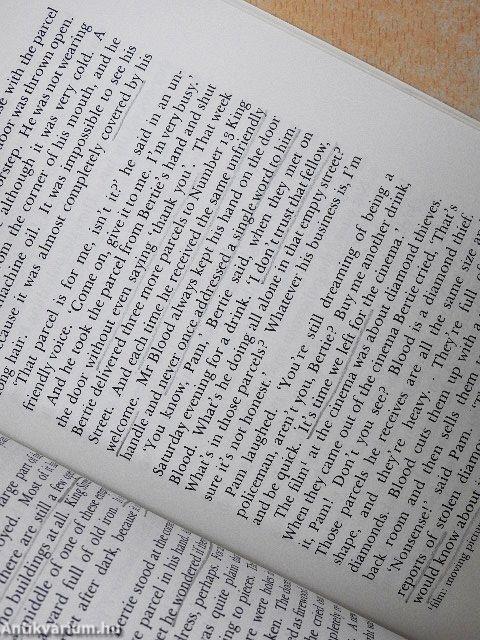 e with the parcel
oor was thrown open.
orstep. He was not wearing
although it was very cold. A
m the corner of his mouth, and he
machine oil. It was impossible to see his
ecause it was almost completely covered by his
ong hair.
'That parcel is for me, isn't it?' he said in an un-
friendly voice. 'Come on, give it to me. I'm very busy.'
And he took the parcel from Bertie's hand and shut
the door, without even saying 'thank you'. That week
Bertie delivered three more parcels to Number 13 King
Street. And each time he received the same unfriendly
welcome. Mr Blood always kept his hand on the door
handle and never once addressed a single word to him.
'You know, Pam,' Bertie said, when they met on
Saturday evening for a drink, 'I don't trust that fellow,
Blood. What's he doing all alone in that empty street?
What's in those parcels? Whatever his business is, I'm
sure it's not honest.'
Pam laughed. 'You're still dreaming of being a
policeman, aren't you, Bertie? Buy me another drink,
and be quick. It's time we left for the cinema.'
The film¹ at the cinema was about diamond thieves.
When they came out of the cinema Bertie cried, 'That's
it, Pam! Don't you see? Blood is a diamond thief.
Those parcels he receives are all the same size an
shape, and they're heavy. They're full of
diamonds. Blood cuts them up with a
back room and then sells them
'Nonsense!' said Pam.
reports of stolen diamon
would know about i
¹film: moving pictu
large part
oyed. Most of
there are still a few
no buildings at all. King
middle of one of these emp
yard full of old iron.
s after dark, because
ertie stood at the
e parcel in his hand.
et he wondered if
dress, perhaps. For
was quite plain
ng to pieces. The
ere were holes
Antikvarium.hu